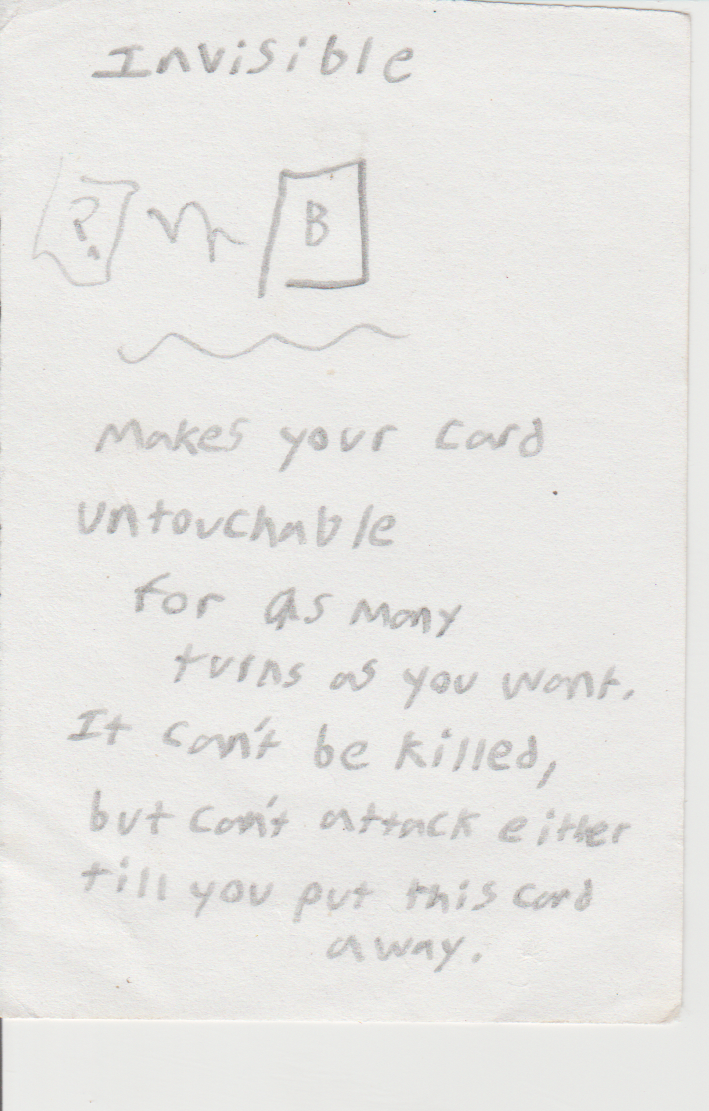 Invisible
? B
Makes your card
untouchable
for as many
turns as you want.
It can't be killed,
but can't attack either
till you put this card
away.